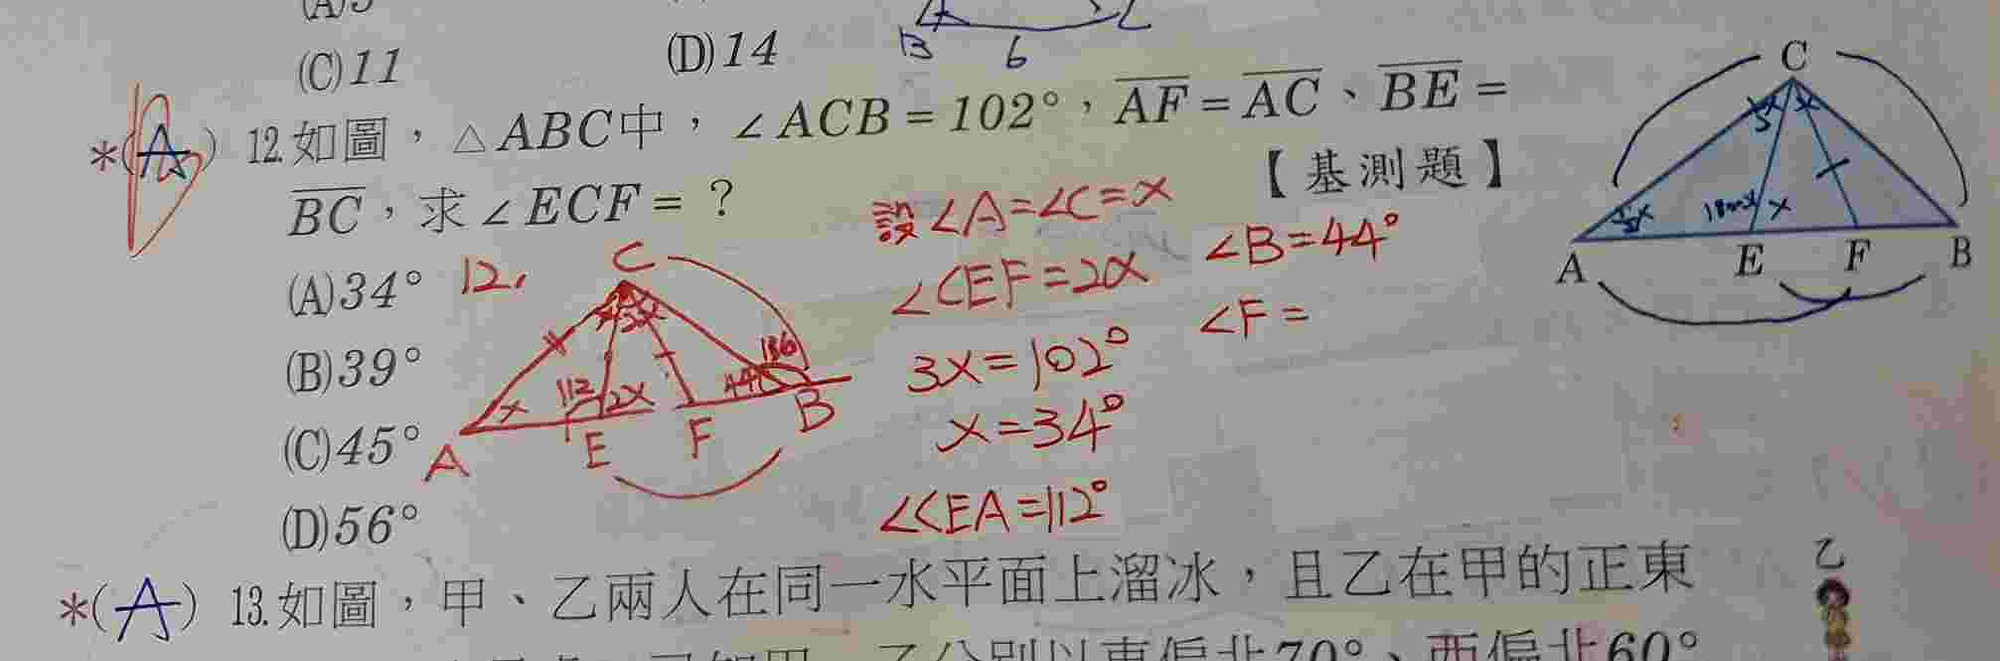 (C)11
(D)14
B 6 C
*(A) 12.如圖，△ABC中，∠ACB=102°，AF=AC、BE=
BC，求∠ECF=？
【基測題】
(A)34°
(B)39°
(C)45°
(D)56°
12.
C
x
112
2x
44
136
A
E
F
B
設∠A=∠C=x
∠CEF=2x
3x=102°
x=34°
∠CEA=112°
∠B=44°
∠F=
C
x
A
E
F
B
*(A) 13.如圖，甲、乙兩人在同一水平面上溜冰，且乙在甲的正東
乙
70°、西偏北60°